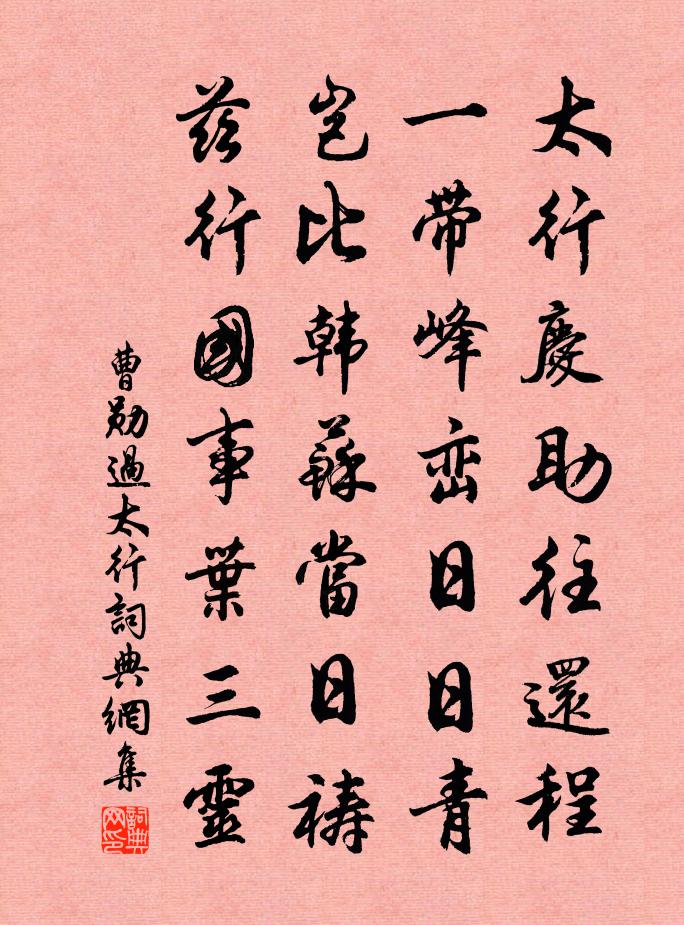 太行慶助往還程
一帶峰巒日日青
豈比韓蘇當日禱
茲行國事葉三靈
曹勛過太行詞典網集
詞典网印